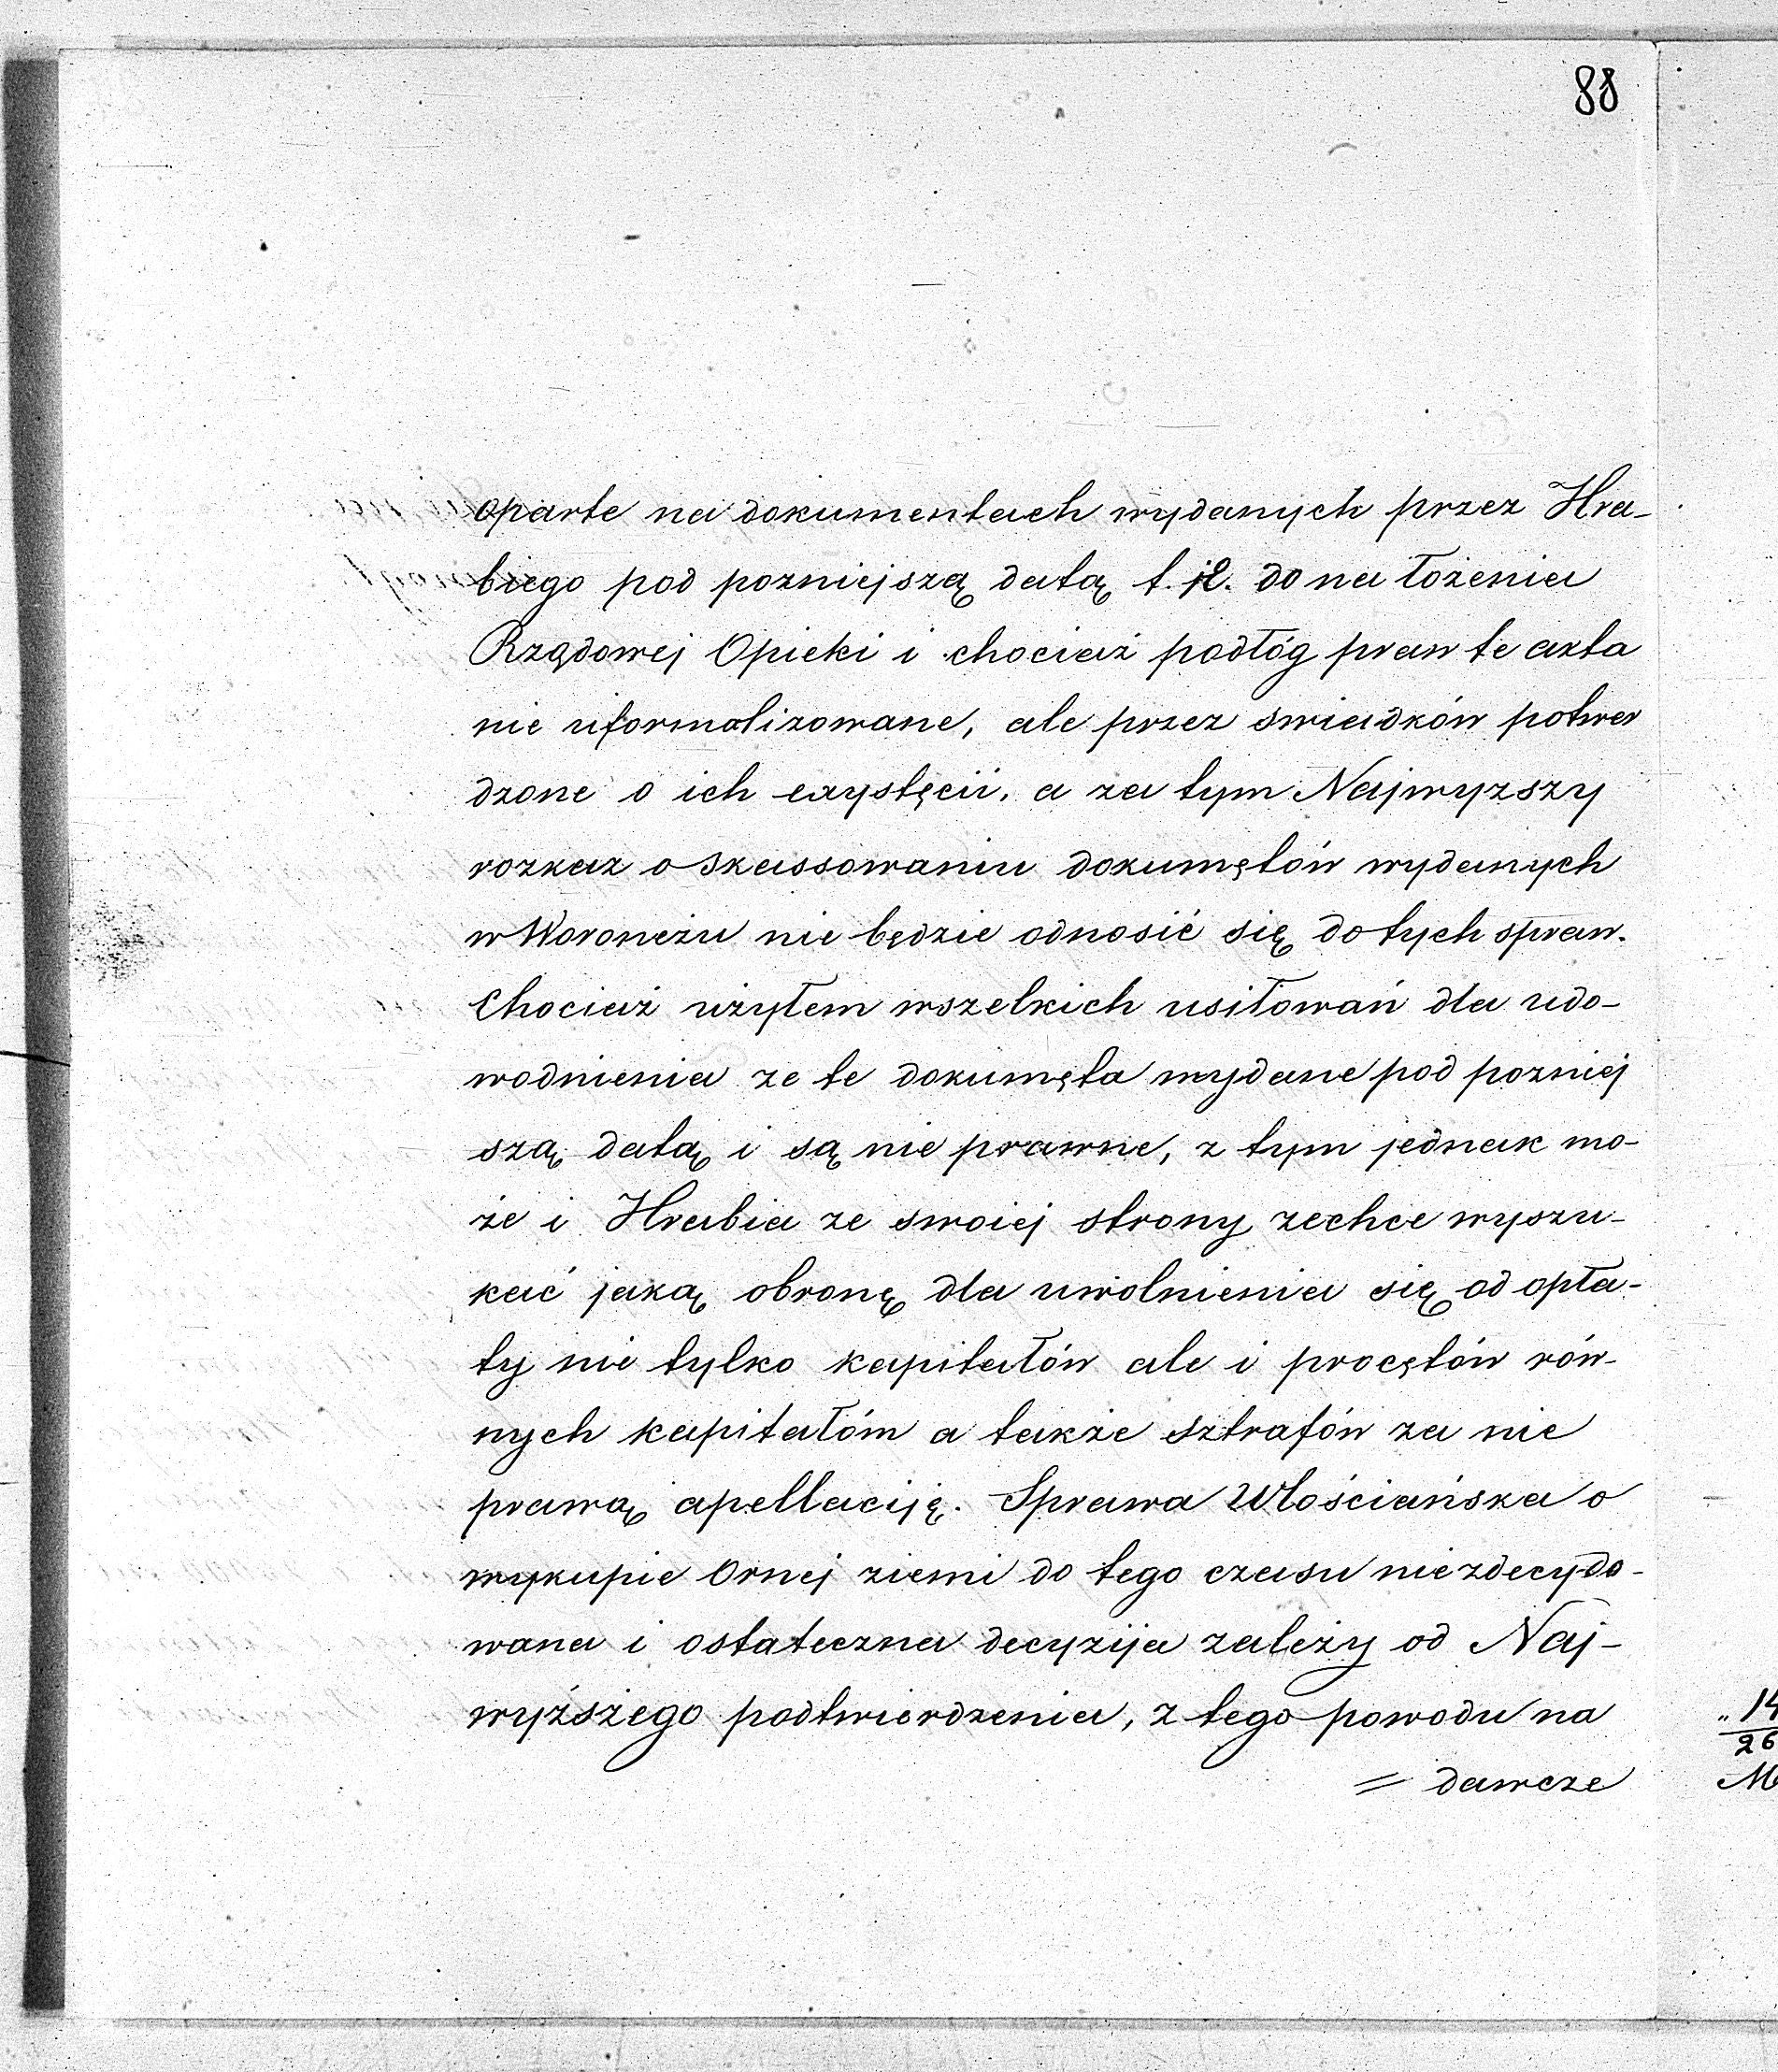 88
oparte na dokumentach wydanych przez Hra-
biego pod pozniejszą datą t. je. do na łożenia
Rządowej Opieki i chociaż podłóg praw te akta
nie uformalizowane, ale przez swiadków potwer
dzone o ich exystęcii, a za tym Najwyzszy
rozkaz o skassowaniu dokumętów wydanych
w Woroneżu nie będzie odnosić się do tych spraw.
Chociaż użyłem wszelkich usiłowań dla udo-
wodnienia ze te dokumęta wydane pod pozniej
szą datą i są nie prawne, z tym jednak mo-
że i Hrabia ze swoiej strony zechce wyszu-
kać jaką obronę dla uwolnienia się od opła-
ty nie tylko kapitałów ale i procętów rów-
nych kapitałóm a także sztrafów za nie
prawą apellaciję. Sprawa Włościańska o
wykupie Ornej ziemi do tego czasu nie zdecydo-
wana i ostateczna decyzija zależy od Naj-
wyższego podtwierdzenia, z tego powodu na
= dawcze
14
26
M